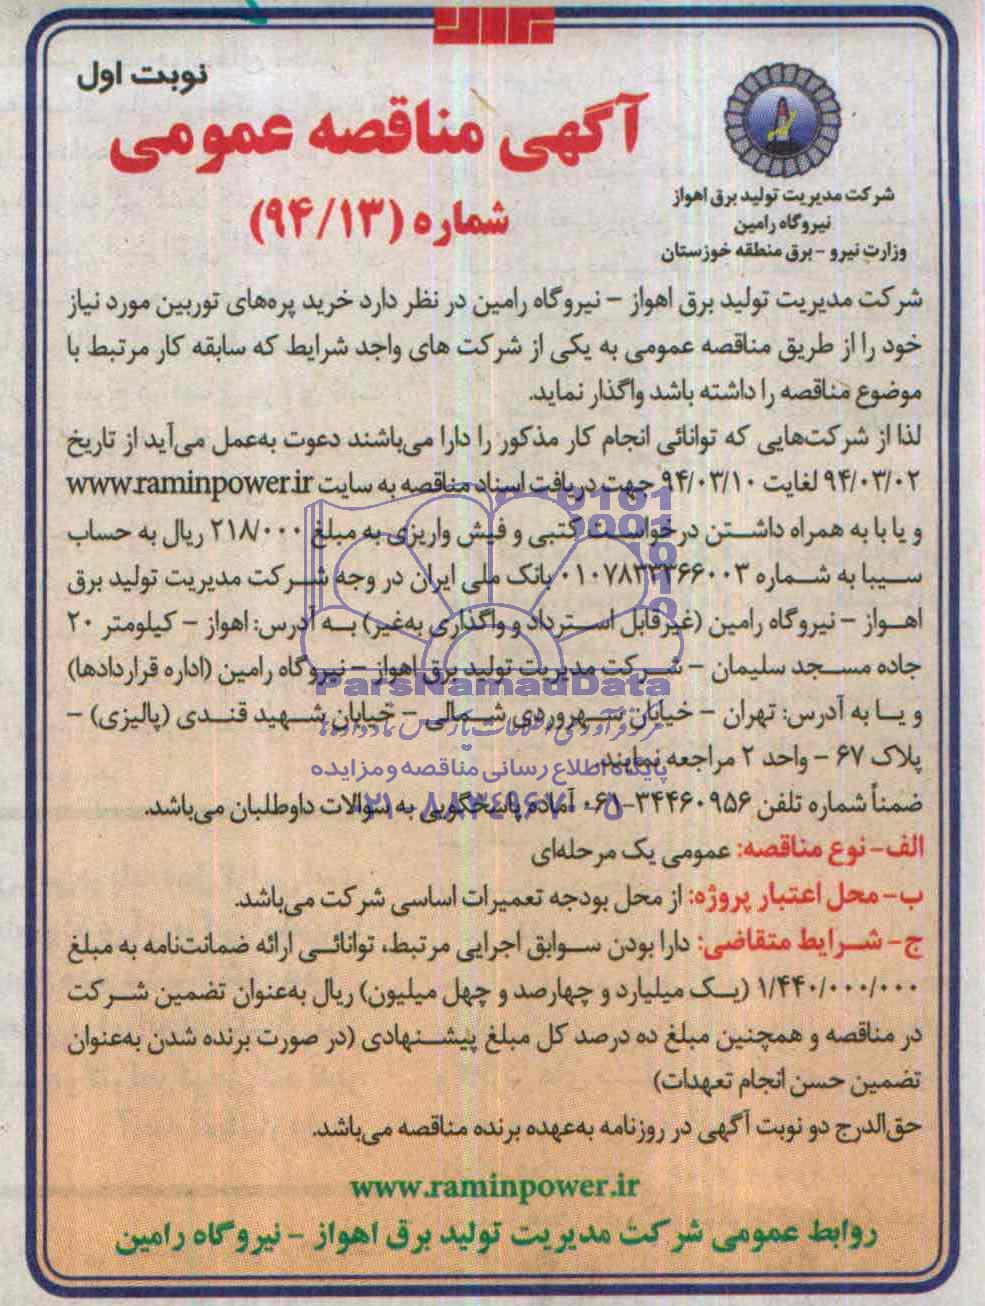 نوبت اول
آگهی مناقصه عمومی
شماره (۹۴/۱۳)
شرکت مدیریت تولید برق اهواز
نیروگاه رامین
وزارت نیرو - برق منطقه خوزستان
شرکت مدیریت تولید برق اهواز - نیروگاه رامین در نظر دارد خرید پره‌های توربین مورد نیاز
خود را از طریق مناقصه عمومی به یکی از شرکت های واجد شرایط که سابقه کار مرتبط با
موضوع مناقصه را داشته باشد واگذار نماید.
لذا از شرکت‌هایی که توانائی انجام کار مذکور را دارا می‌باشند دعوت به‌عمل می‌آید از تاریخ
۹۴/۰۳/۰۲ لغایت ۹۴/۰۳/۱۰ جهت دریافت اسناد مناقصه به سایت www.raminpower.ir
و یا با به همراه داشتن درخواست کتبی و فیش واریزی به مبلغ ۲۱۸/۰۰۰ ریال به حساب
سیبا به شماره ۰۱۰۷۸۳۳۳۶۶۰۰۳ بانک ملی ایران در وجه شرکت مدیریت تولید برق
اهواز - نیروگاه رامین (غیرقابل استرداد و واگذاری به‌غیر) به آدرس: اهواز - کیلومتر ۲۰
جاده مسجد سلیمان - شرکت مدیریت تولید برق اهواز - نیروگاه رامین (اداره قراردادها)
و یا به آدرس: تهران - خیابان سهروردی شمالی - خیابان شهید قندی (پالیزی) -
پلاک ۶۷ - واحد ۲ مراجعه نمایند.
ضمناً شماره تلفن ۳۴۴۶۰۹۵۶-۰۶۱ آماده پاسخگویی به سوالات داوطلبان می‌باشد.
الف- نوع مناقصه: عمومی یک مرحله‌ای
ب- محل اعتبار پروژه: از محل بودجه تعمیرات اساسی شرکت می‌باشد.
ج- شرایط متقاضی: دارا بودن سوابق اجرایی مرتبط، توانائی ارائه ضمانت‌نامه به مبلغ
۱/۴۴۰/۰۰۰/۰۰۰ (یک میلیارد و چهارصد و چهل میلیون) ریال به‌عنوان تضمین شرکت
در مناقصه و همچنین مبلغ ده درصد کل مبلغ پیشنهادی (در صورت برنده شدن به‌عنوان
تضمین حسن انجام تعهدات)
حق‌الدرج دو نوبت آگهی در روزنامه به‌عهده برنده مناقصه می‌باشد.
www.raminpower.ir
روابط عمومی شرکت مدیریت تولید برق اهواز - نیروگاه رامین
ParsNamadData
پایگاه اطلاع رسانی مناقصه و مزایده